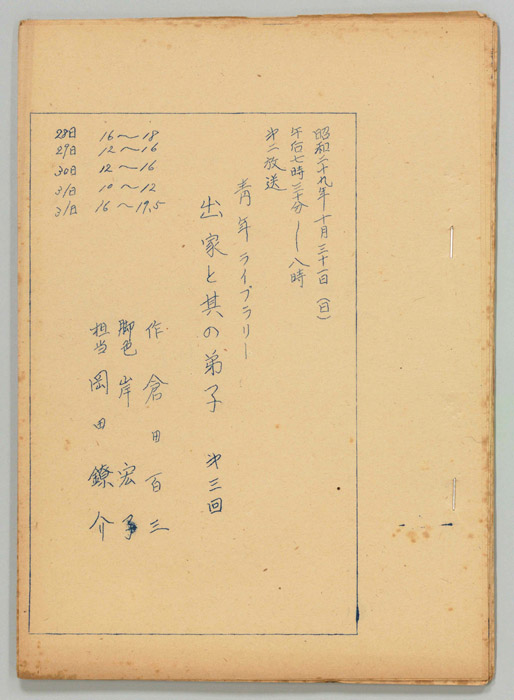 昭和二十九年十月三十一日(日)
午后七時三十分―八時
第二放送
青年ライブラリー
出家と其の弟子 第三回
作 倉田百三
脚色 岸宏子
担当 岡田鐐介
28日 16〜18
29日 12〜16
30日 12〜16
31日 10〜12
31日 16〜19.5